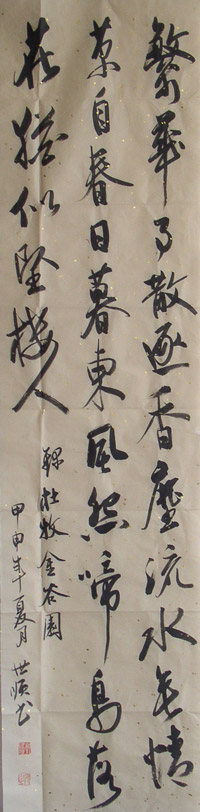 繁華事散逐香塵流水無情
草自春日暮東風怨啼鳥落
花猶似墜樓人
錄杜牧金谷園
甲申年夏月世順书